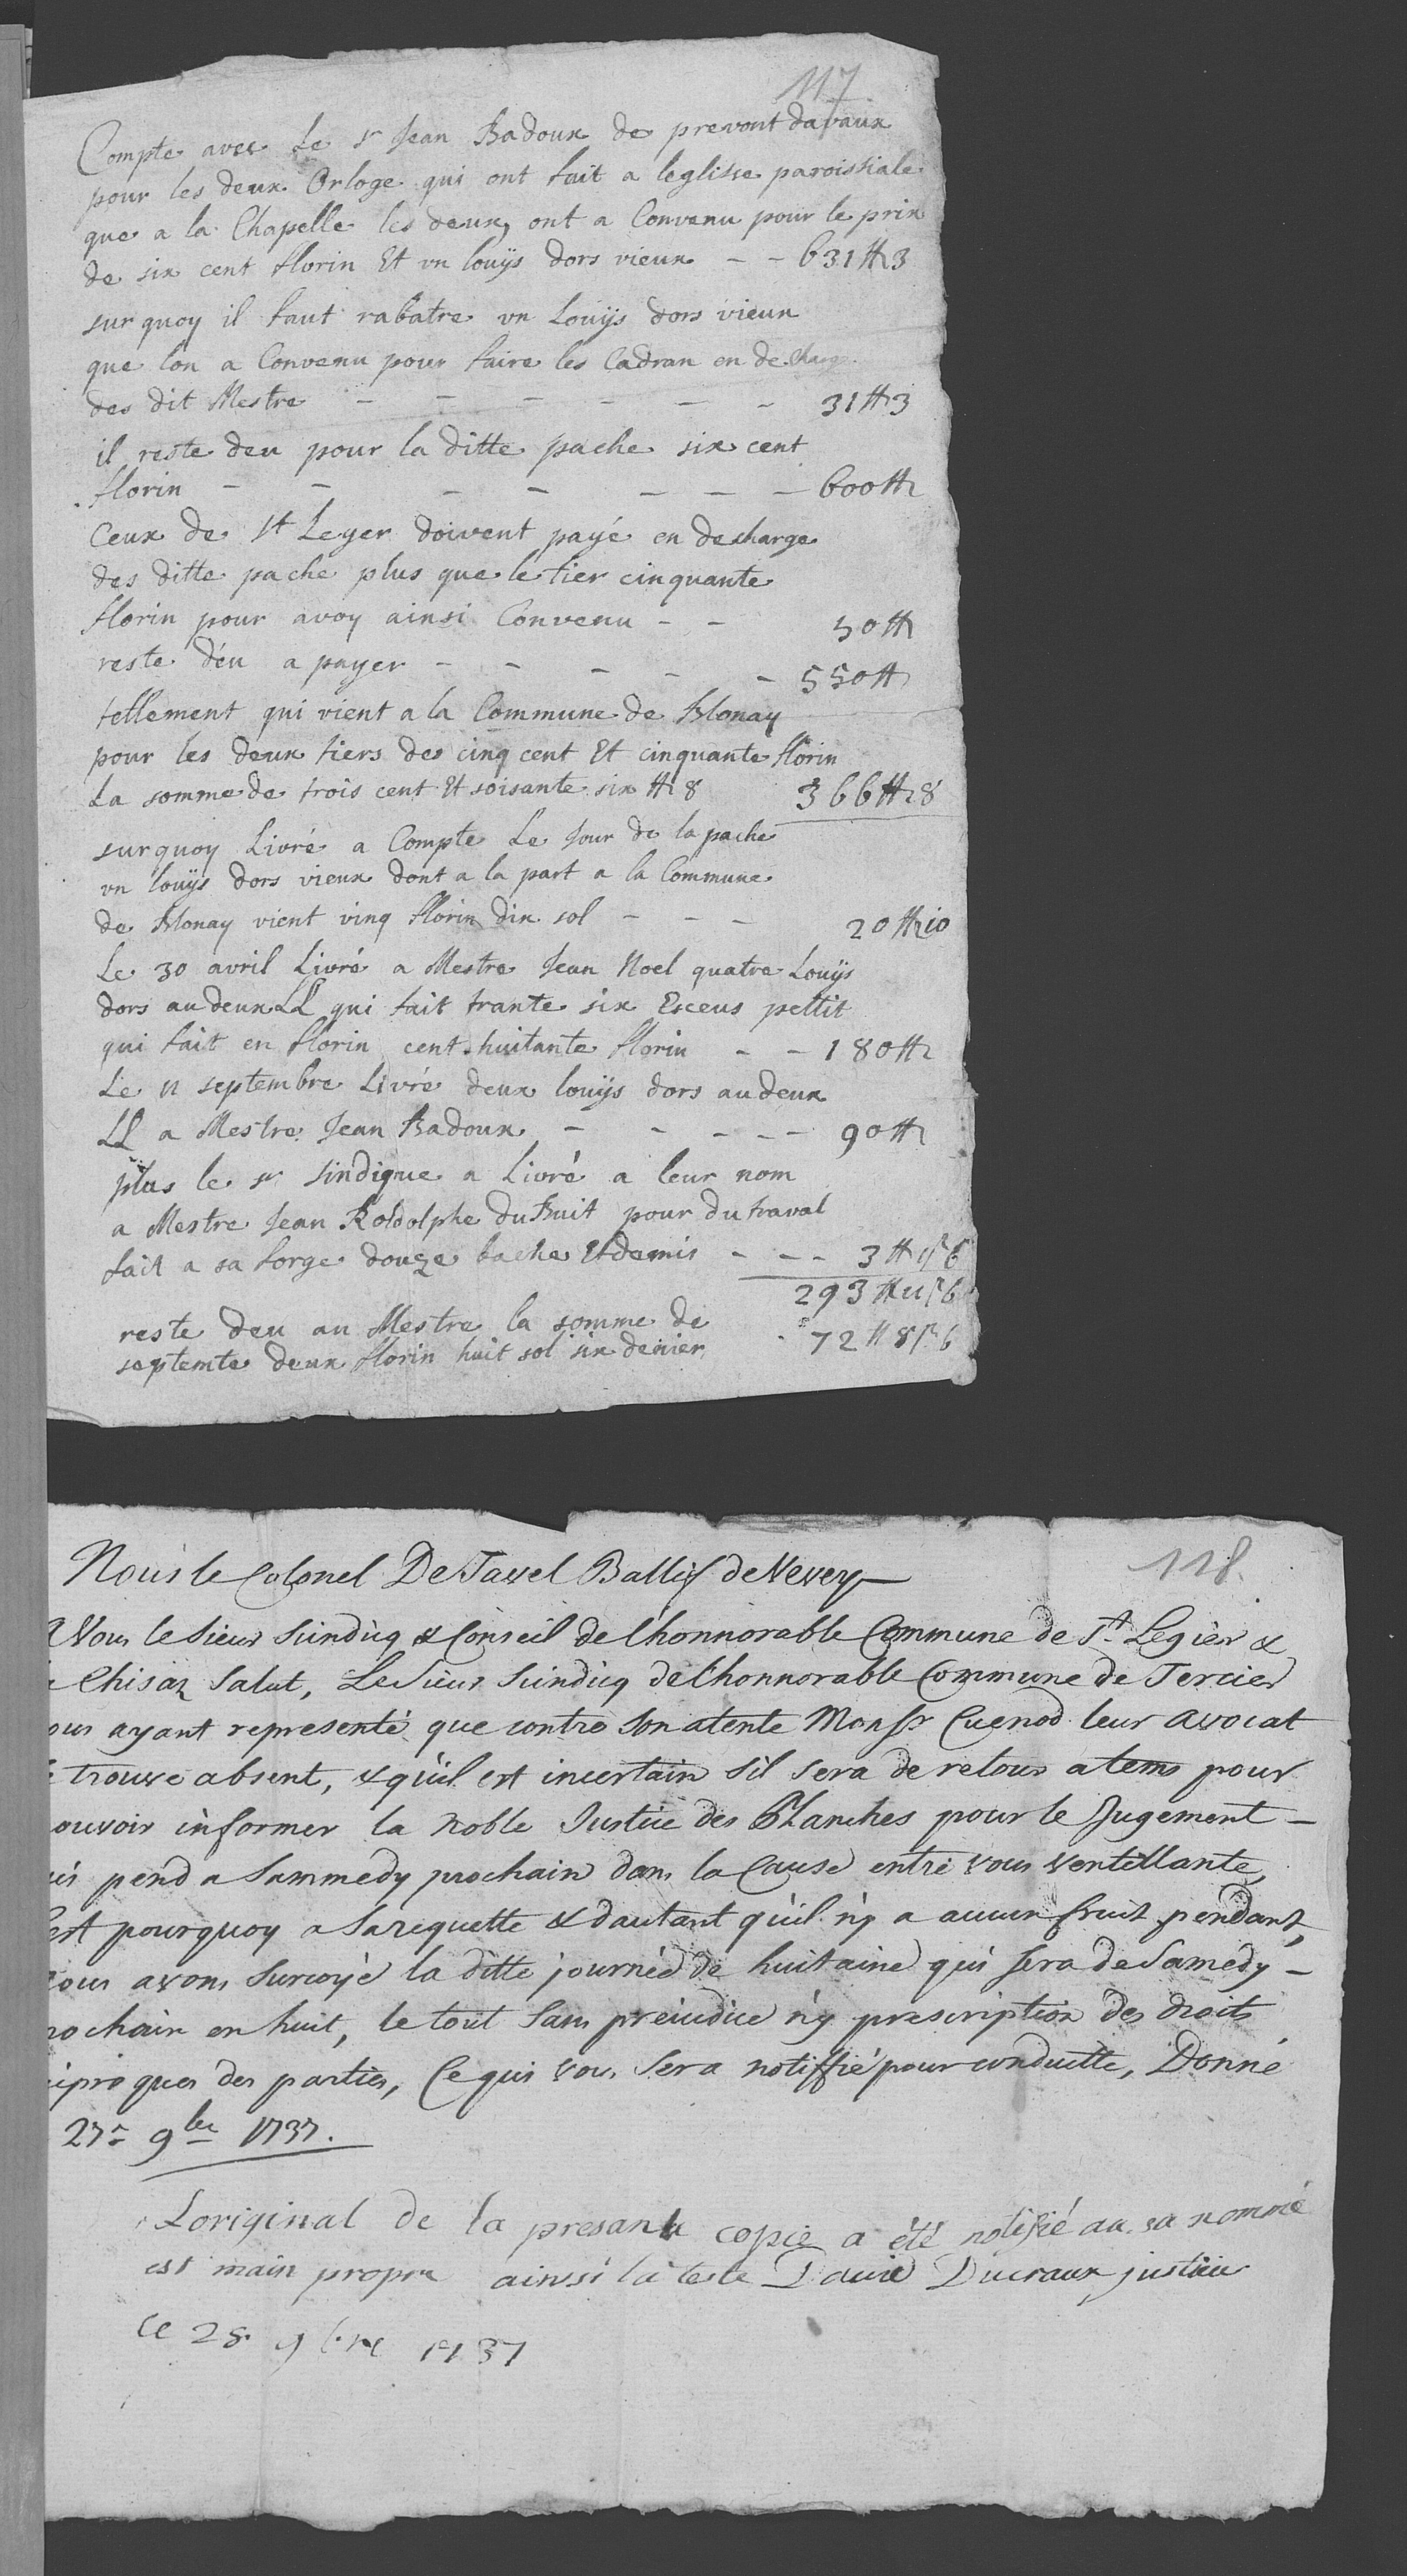 117
Compte avec Le Sr Jean Badoux de prevont davaux
pour les deux Orloge qui ont fait a leglisse paroissiale
que a la Chapelle les deux, ont a Convenu pour le prix
de six cent florin Et un louÿs dors vieux - - 631 ff 3
sur quoy il faut rabatre un Louÿs dors vieux
que lon a Convenu pour faire les Cadran en decharge
des dit Mestre - - - - - - 31 ff 3
il reste deu pour la ditte pache six cent
florin - - - - - - - 600 ff
Ceux de St Leger doivent payé en decharge
des ditte pache plus que le tier cinquante
florin pour avoy ainsi Convenu - - 50 ff
reste déu a payer - - - - - 550 ff
tellement qui vient a la Commune de Blonay
pour les deux tiers des cinq cent Et cinquante florin
La somme de trois cent Et soisante six ff 8 366 ff 8
surquoy Livré a Compte Le Jour de la pache
un louÿs dors vieux dont a la part a la Commune
de Blonay vient vinq florin dix sol - - - 20 ff 10
Le 30 avril Livré a Mestre Jean Noel quatre Louÿs
dors au deux LL qui fait trante six Esceus pettit
qui fait en florin cent huitante florin - - 180 ff
Le 11 septembre Livré deux louÿs dors au deux
LL a Mestre Jean Badoux - - - - - 90 ff
plus le sr sindique a Livré a leur nom
a Mestre Jean Roldolphe du Buit pour du traval
fait a sa forge douze bache Et demis - - - 3 ff 1 ß 6
293 ff 11 ß 6
reste deu au Mestre la somme de
septente deux florin huit sol six denier 72 ff 8 ß 6
118.
Nous le Colonel De Tavel Ballif de Vevey
A Vous le sieur Sindicq & Conseil de lhonnorable Commune de St Legier &
Chisaz Salut, Le Sieur Sindicq de lhonnorable Commune de Tercier
ous ayant representé que contre son atente Monsr Cuenod leur avocat
e trouve absent, & qu'il est incertain s'il sera de retour a tems pour
ouvoir informer la Noble Justice des Planches pour le Jugement -
ui pend a Sammedy prochain dans la Cause entre vous ventillante,
est pourquoy a Sa requette & dautant qu'il n'y a aucun fruit pendant,
ous avons surcoyé la ditte journée de huitaine qui sera de Samedy -
rochain en huit, le tout sans préiudice n'y prescription des droits
iproques des parties, Ce qui vous sera notiffié pour conduitte, Donné
27e 9bre 1737.
Loriginal de la presante copie a été notifié au sa nommé
est main propre ainsi latteste Davie Ducraux justicie
ce 28 9bre 1737